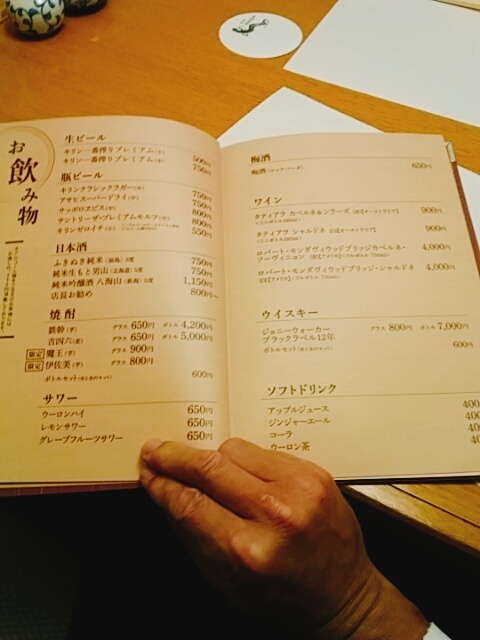 お飲み物
生ビール
キリン一番搾りプレミアム(小) 500円
キリン一番搾りプレミアム(中) 750円
瓶ビール
キリンクラシックラガー(中) 750円
アサヒスーパードライ(中) 750円
サッポロヱビス(中) 800円
サントリーザ・プレミアムモルツ(中) 800円
キリンゼロイチ 550円
日本酒
ふきぬき純米 750円
純米生もと男山(北海道) 750円
純米吟醸酒 八海山(新潟) 1,150円
店長お勧め 800円〜
焼酎
鉄幹(芋) グラス 650円 ボトル 4,200円
吉四六(麦) グラス 650円 ボトル 5,000円
限定 魔王(芋) グラス 900円
限定 伊佐美(芋) グラス 800円
ボトルセット(水と氷のセット) 600円
サワー
ウーロンハイ 650円
レモンサワー 650円
グレープフルーツサワー 650円
梅酒
梅酒(ロック・ソーダ) 650円
ワイン
タティアラ カベルネ&シラーズ 900円
タティアラ シャルドネ 900円
ロバート・モンダヴィウッドブリッジカベルネ・
ソーヴィニョン 4,000円
ロバート・モンダヴィウッドブリッジ・シャルドネ 4,000円
ウイスキー
ジョニーウォーカー グラス 800円 ボトル 7,000円
ブラックラベル12年
ボトルセット(水と氷のセット) 600円
ソフトドリンク
アップルジュース 400
ジンジャーエール 400
コーラ
ウーロン茶